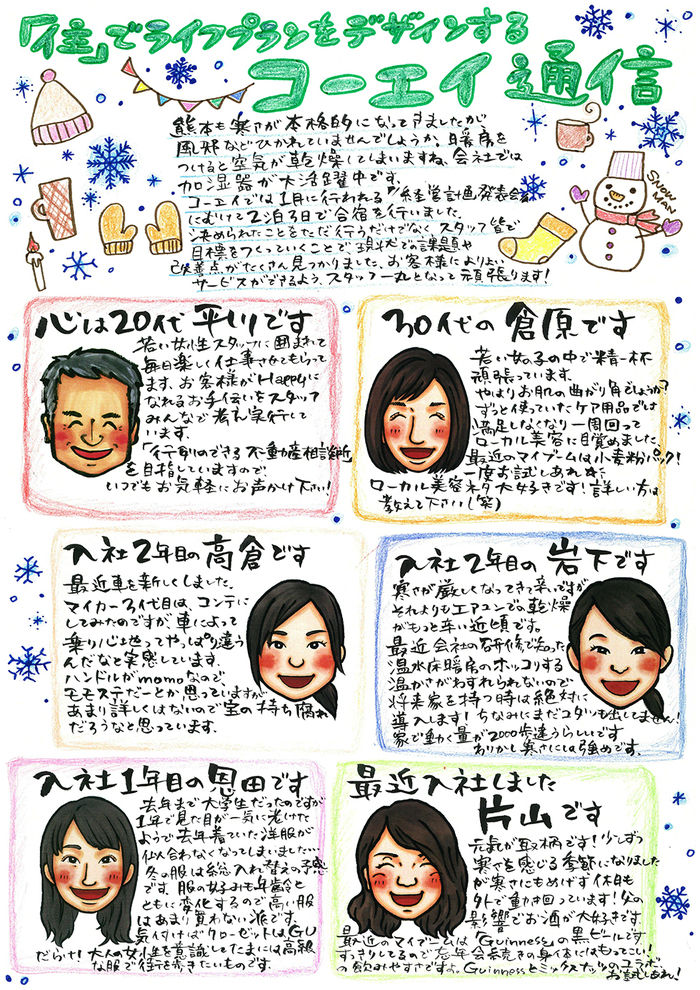 「住」でライフプランをデザインする
コーエイ通信
熊本も寒さが本格的になってきましたが
風邪などひかれていませんでしょうか。暖房を
つけると空気が乾燥してしまいますね。会社では
加湿器が大活躍中です。
コーエイでは1月に行われる経営計画発表会
にむけて2泊3日で合宿を行いました。
決められたことをただ行うだけでなく、スタッフ皆で
目標をつくっていくことで、現状での課題や
改善点がたくさん見つかりました。お客様によりよい
サービスができるよう、スタッフ一丸となって頑張ります!
SNOW MAN
心は20代 平川です
若い女性スタッフに囲まれて
毎日楽しく仕事させてもらって
ます。お客様がHappyに
なれるお手伝いをスタッフ
みんなで考え実行して
います。
「行列のできる不動産相談所」
を目指していますので、
いつでもお気軽にお声かけ下さい!
30代の倉原です
若い女の子の中で精一杯
頑張っています。
やはりお肌の曲がり角でしょうか?
ずっと使っていたケア用品では
満足しなくなり一周回って
ローカル美容に目覚めました。
最近のマイブームは小麦粉パック!
一度お試しあれ
ローカル美容ネタ大好きです!詳しい方は
教えて下さい(笑)
入社2年目の高倉です
最近車を新しくしました。
マイカー3代目は、コンテに
してみたのですが車によって
乗り心地ってやっぱり違う
んだなと実感しています。
ハンドルがmomoなので
モモステだーとか思っていますが
あまり詳しくはないので宝の持ち腐れ
だろうなと思っています。
入社2年目の岩下です
寒さが厳しくなってきて辛いですが
それよりもエアコンでの乾燥
がもっと辛い近頃です。
最近会社の研修で知った
温水床暖房のホッコリする
温かさがわすれられないので
将来家を持つ時は絶対に
導入します!ちなみにまだコタツも出してません!
家で動く量が2000歩違うらしいです
わりかし寒さには強めです。
入社1年目の恩田です
去年まで大学生だったのですが
1年で見た目が一気に老けた
ようで去年着ていた洋服が
似合わなくなってしまいました…
冬の服は総入れ替えの予感
です。服の好みも年齢と
ともに変化するので高い服
はあまり買わない派です。
気付けばクローゼットはGU
だらけ!大人の女性を意識してたまには高級
な服で街を歩きたいものです。
最近入社しました
片山です
元気が取柄です!少しずつ
寒さを感じる季節になりました
が寒さにもめげず休日も
外で動き回っています!父の
影響でお酒が大好きです。
最近のマイブームは「Guinness」の黒ビールです
すっきりしてるので忘年会続きの身体にはもってこい!
の飲みやすさですよ。Guinnessとミックスナッツのコラボ
お試しあれ!